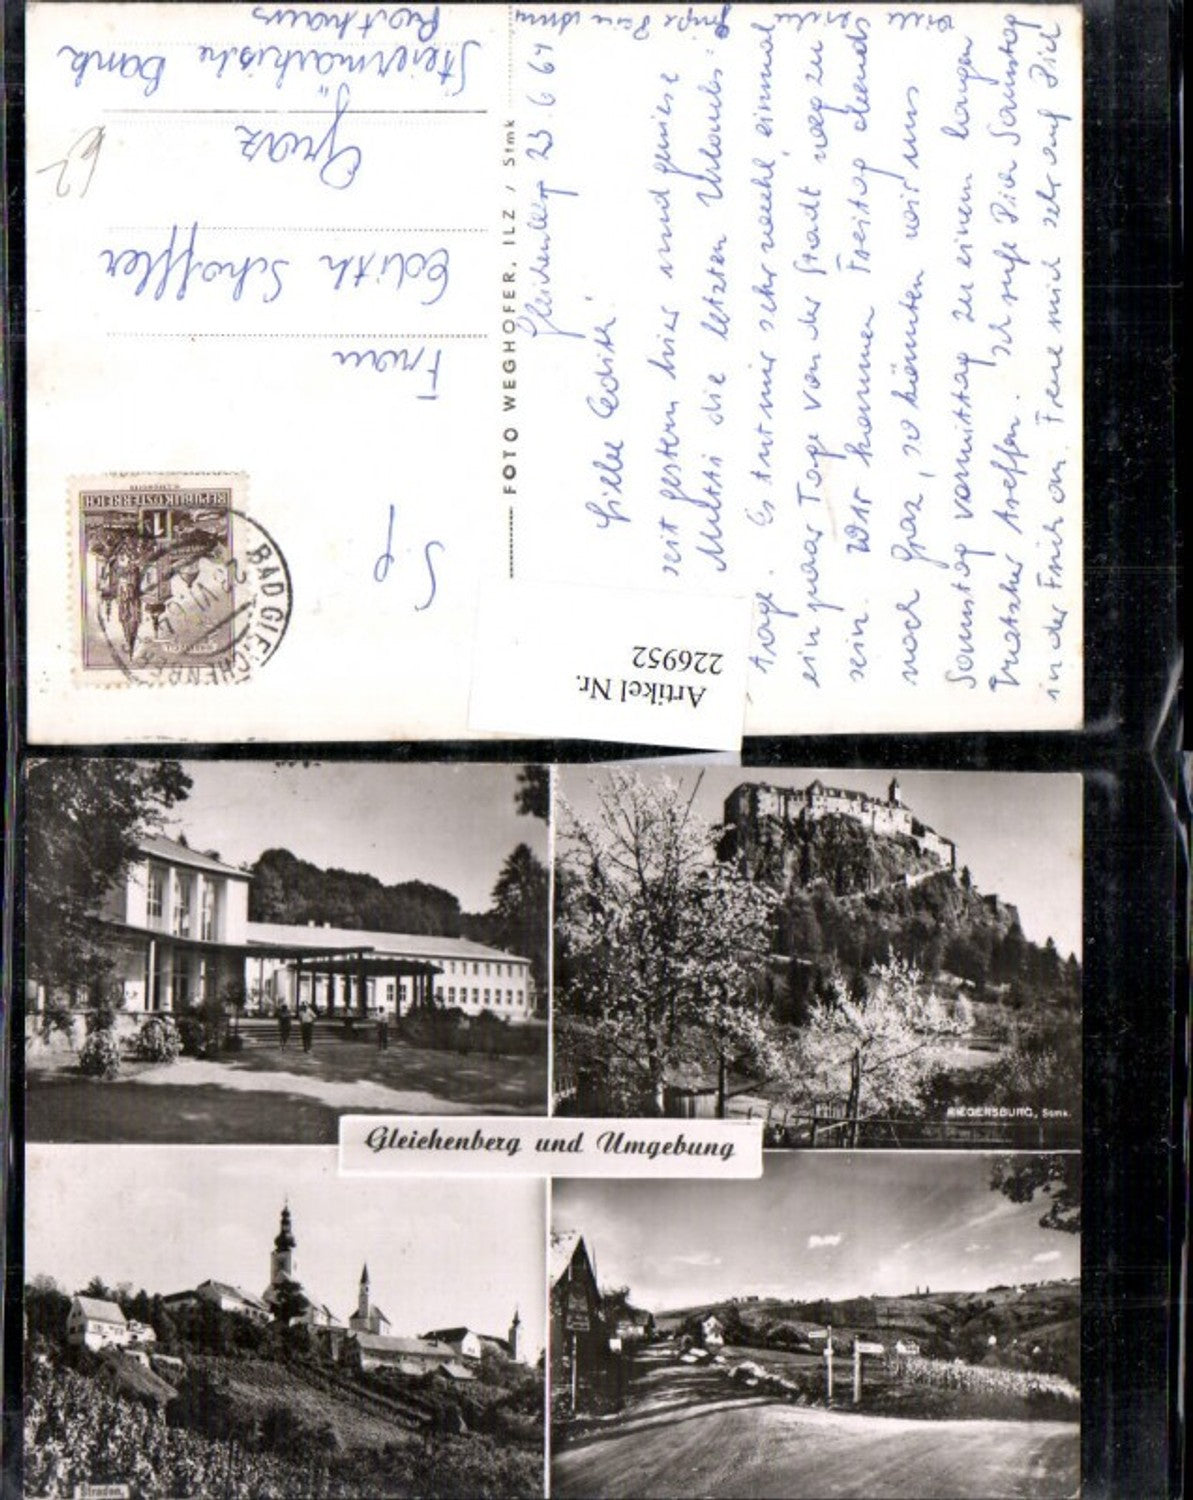 Gleichenberg 23.6.64
Liebe Edith!
seit gestern hier und genieße
Mutti die letzten Urlaubs-
tage. Es tut mir sehr wohl, einmal
ein paar Tage von der Stadt weg zu
sein. Wir kommen Freitag abends
nach Graz, so könnten wir uns
Samstag vormittag zu einem
treffen. Ich rufe Dich Samstag
in der Früh an. Freue mich sehr auf Dich
Viele
Grüße Deine
FOTO WEGHOFER, ILZ / Stmk
REPUBLIK ÖSTERREICH
BAD GLEICHENBERG
Frau
Edith Schoffler
Graz
Steiermärkische Bank
Rathaus
62
Artikel Nr.
226952
RIEGERSBURG, Stmk.
Gleichenberg und Umgebung
Straden.